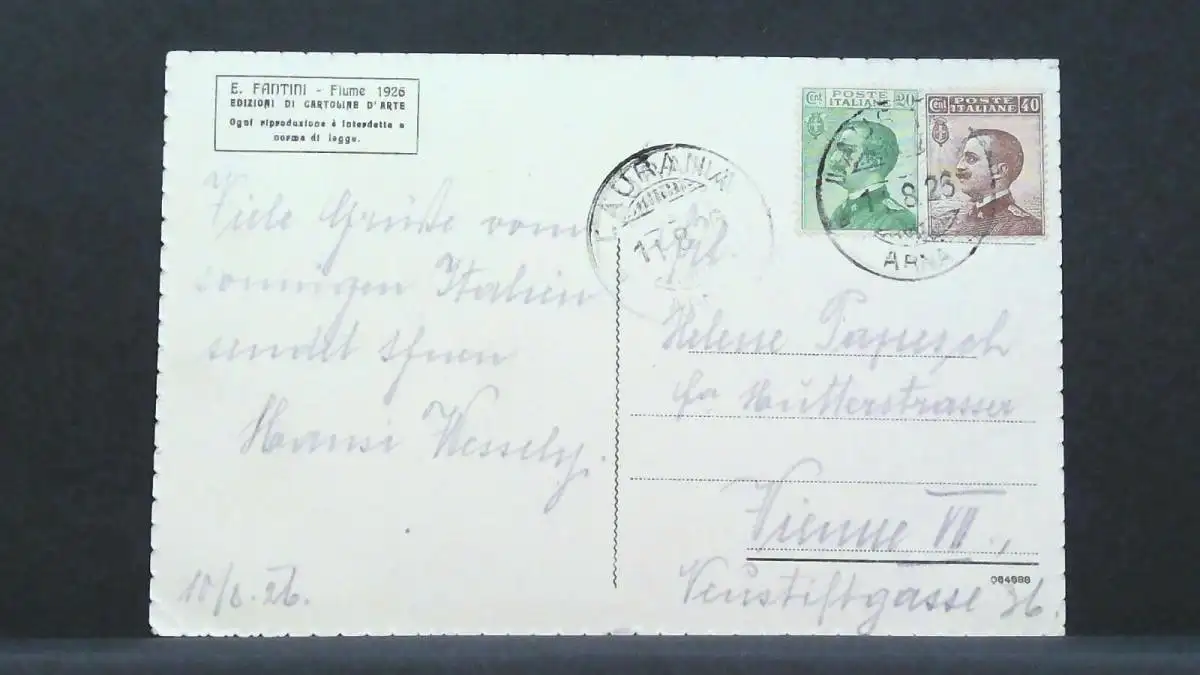 E. FANTINI - Fiume 1926
EDIZIONI DI CARTOLINE D'ARTE
Ogni riproduzione è interdetta a
norma di legge.
Cent. POSTE ITALIANE 20
Cent. POSTE ITALIANE 40
LAURANA
11.8
8.26
Viele Grüße vom
sonnigen Italien
sendet Ihnen
Hansi Wessely.
10/8.26.
Helene
Hutterstrasser
Vienne VII.,
Neustiftgasse 36.
064698